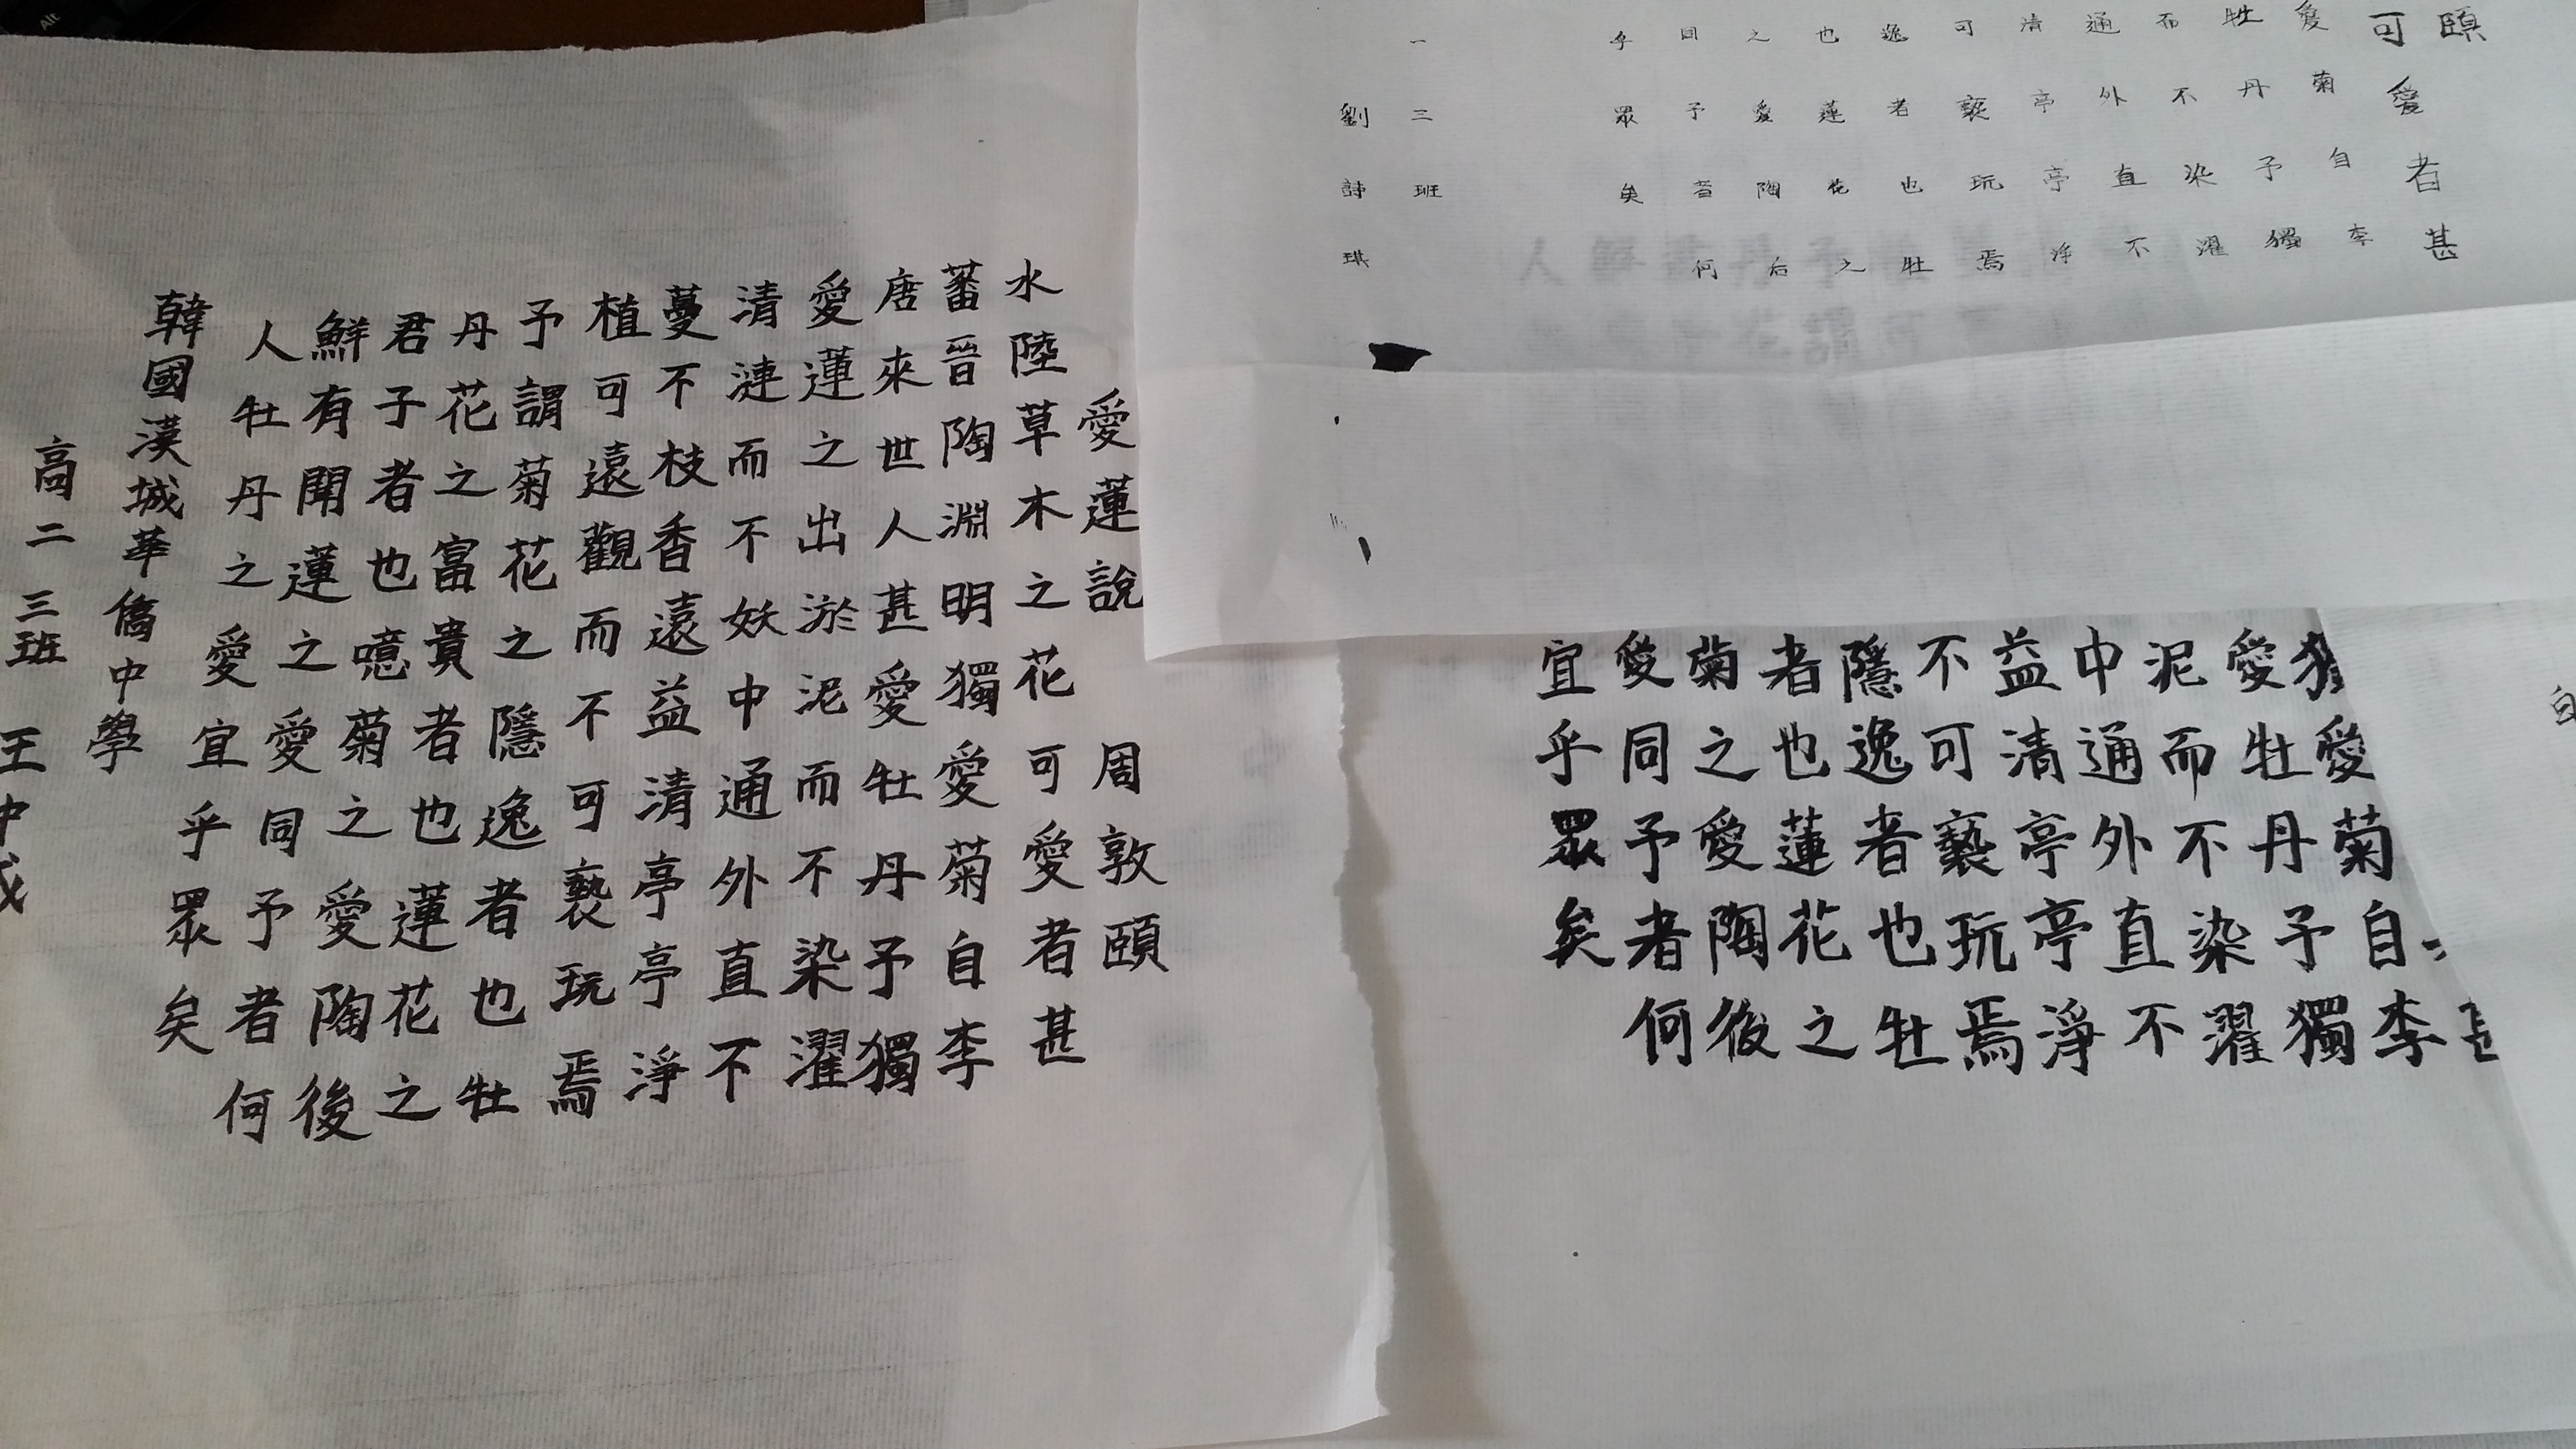 愛蓮說 周敦頤
水陸草木之花可愛者甚
蕃晉陶淵明獨愛菊自李
唐來世人甚愛牡丹予獨
愛蓮之出淤泥而不染濯
清漣而不妖中通外直不
蔓不枝香遠益清亭亭淨
植可遠觀而不可褻玩焉
予謂菊花之隱逸者也牡
丹花之富貴者也蓮花之
君子者也噫菊之愛陶後
鮮有聞蓮之愛同予者何
人牡丹之愛宜乎眾矣
韓國漢城華僑中學
高二 三班 王中
頤
可愛者甚
愛菊自李
牡丹予獨
而不染濯
通外直不
清亭亭淨
可褻玩焉
逸者也牡
也蓮花之
之愛陶后
同予者何
乎眾矣
一三班
劉詩琪
愛菊自李
愛牡丹予獨
泥而不染濯
中通外直不
益清亭亭淨
不可褻玩焉
隱逸者也牡
者也蓮花之
菊之愛陶後
愛同予者何
宜乎眾矣